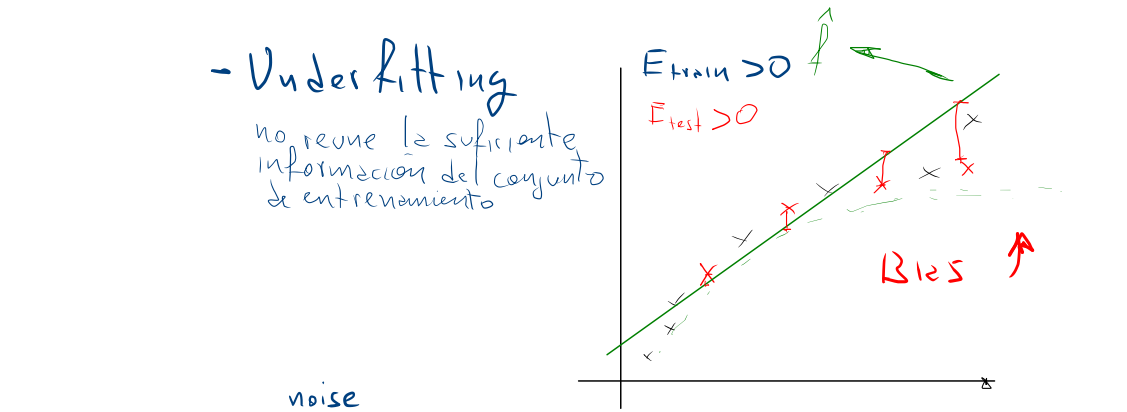 - Underfitting
no reune la suficiente
información del conjunto
de entrenamiento
Etrain >0
Etest >0
f̂
Bias ↑
noise